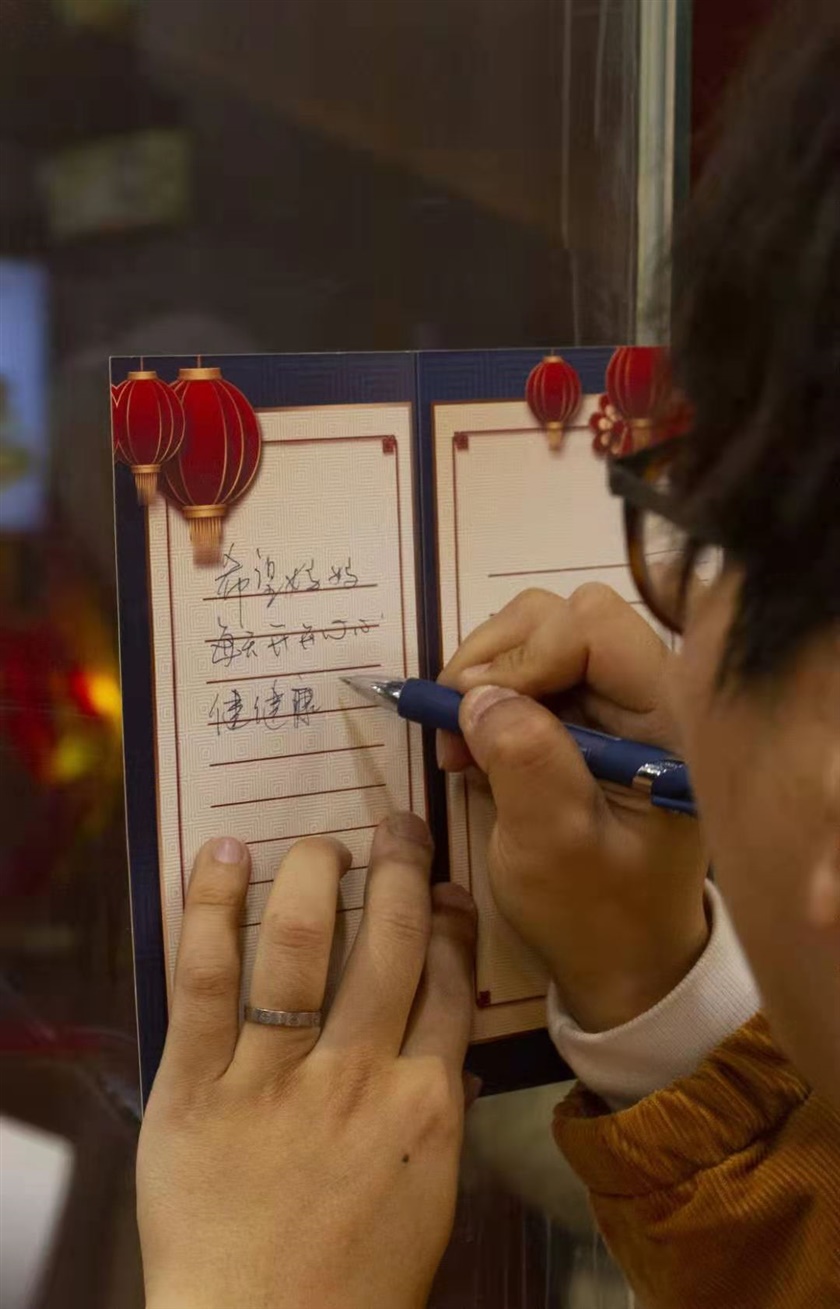 希望妈妈
每天开开心心
健健康